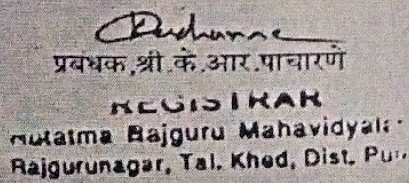 प्रबंधक,श्री.के.आर.पाचारणे
REGISTRAR
Hutatma Rajguru Mahavidyala
Rajgurunagar, Tal. Khed, Dist. Pu